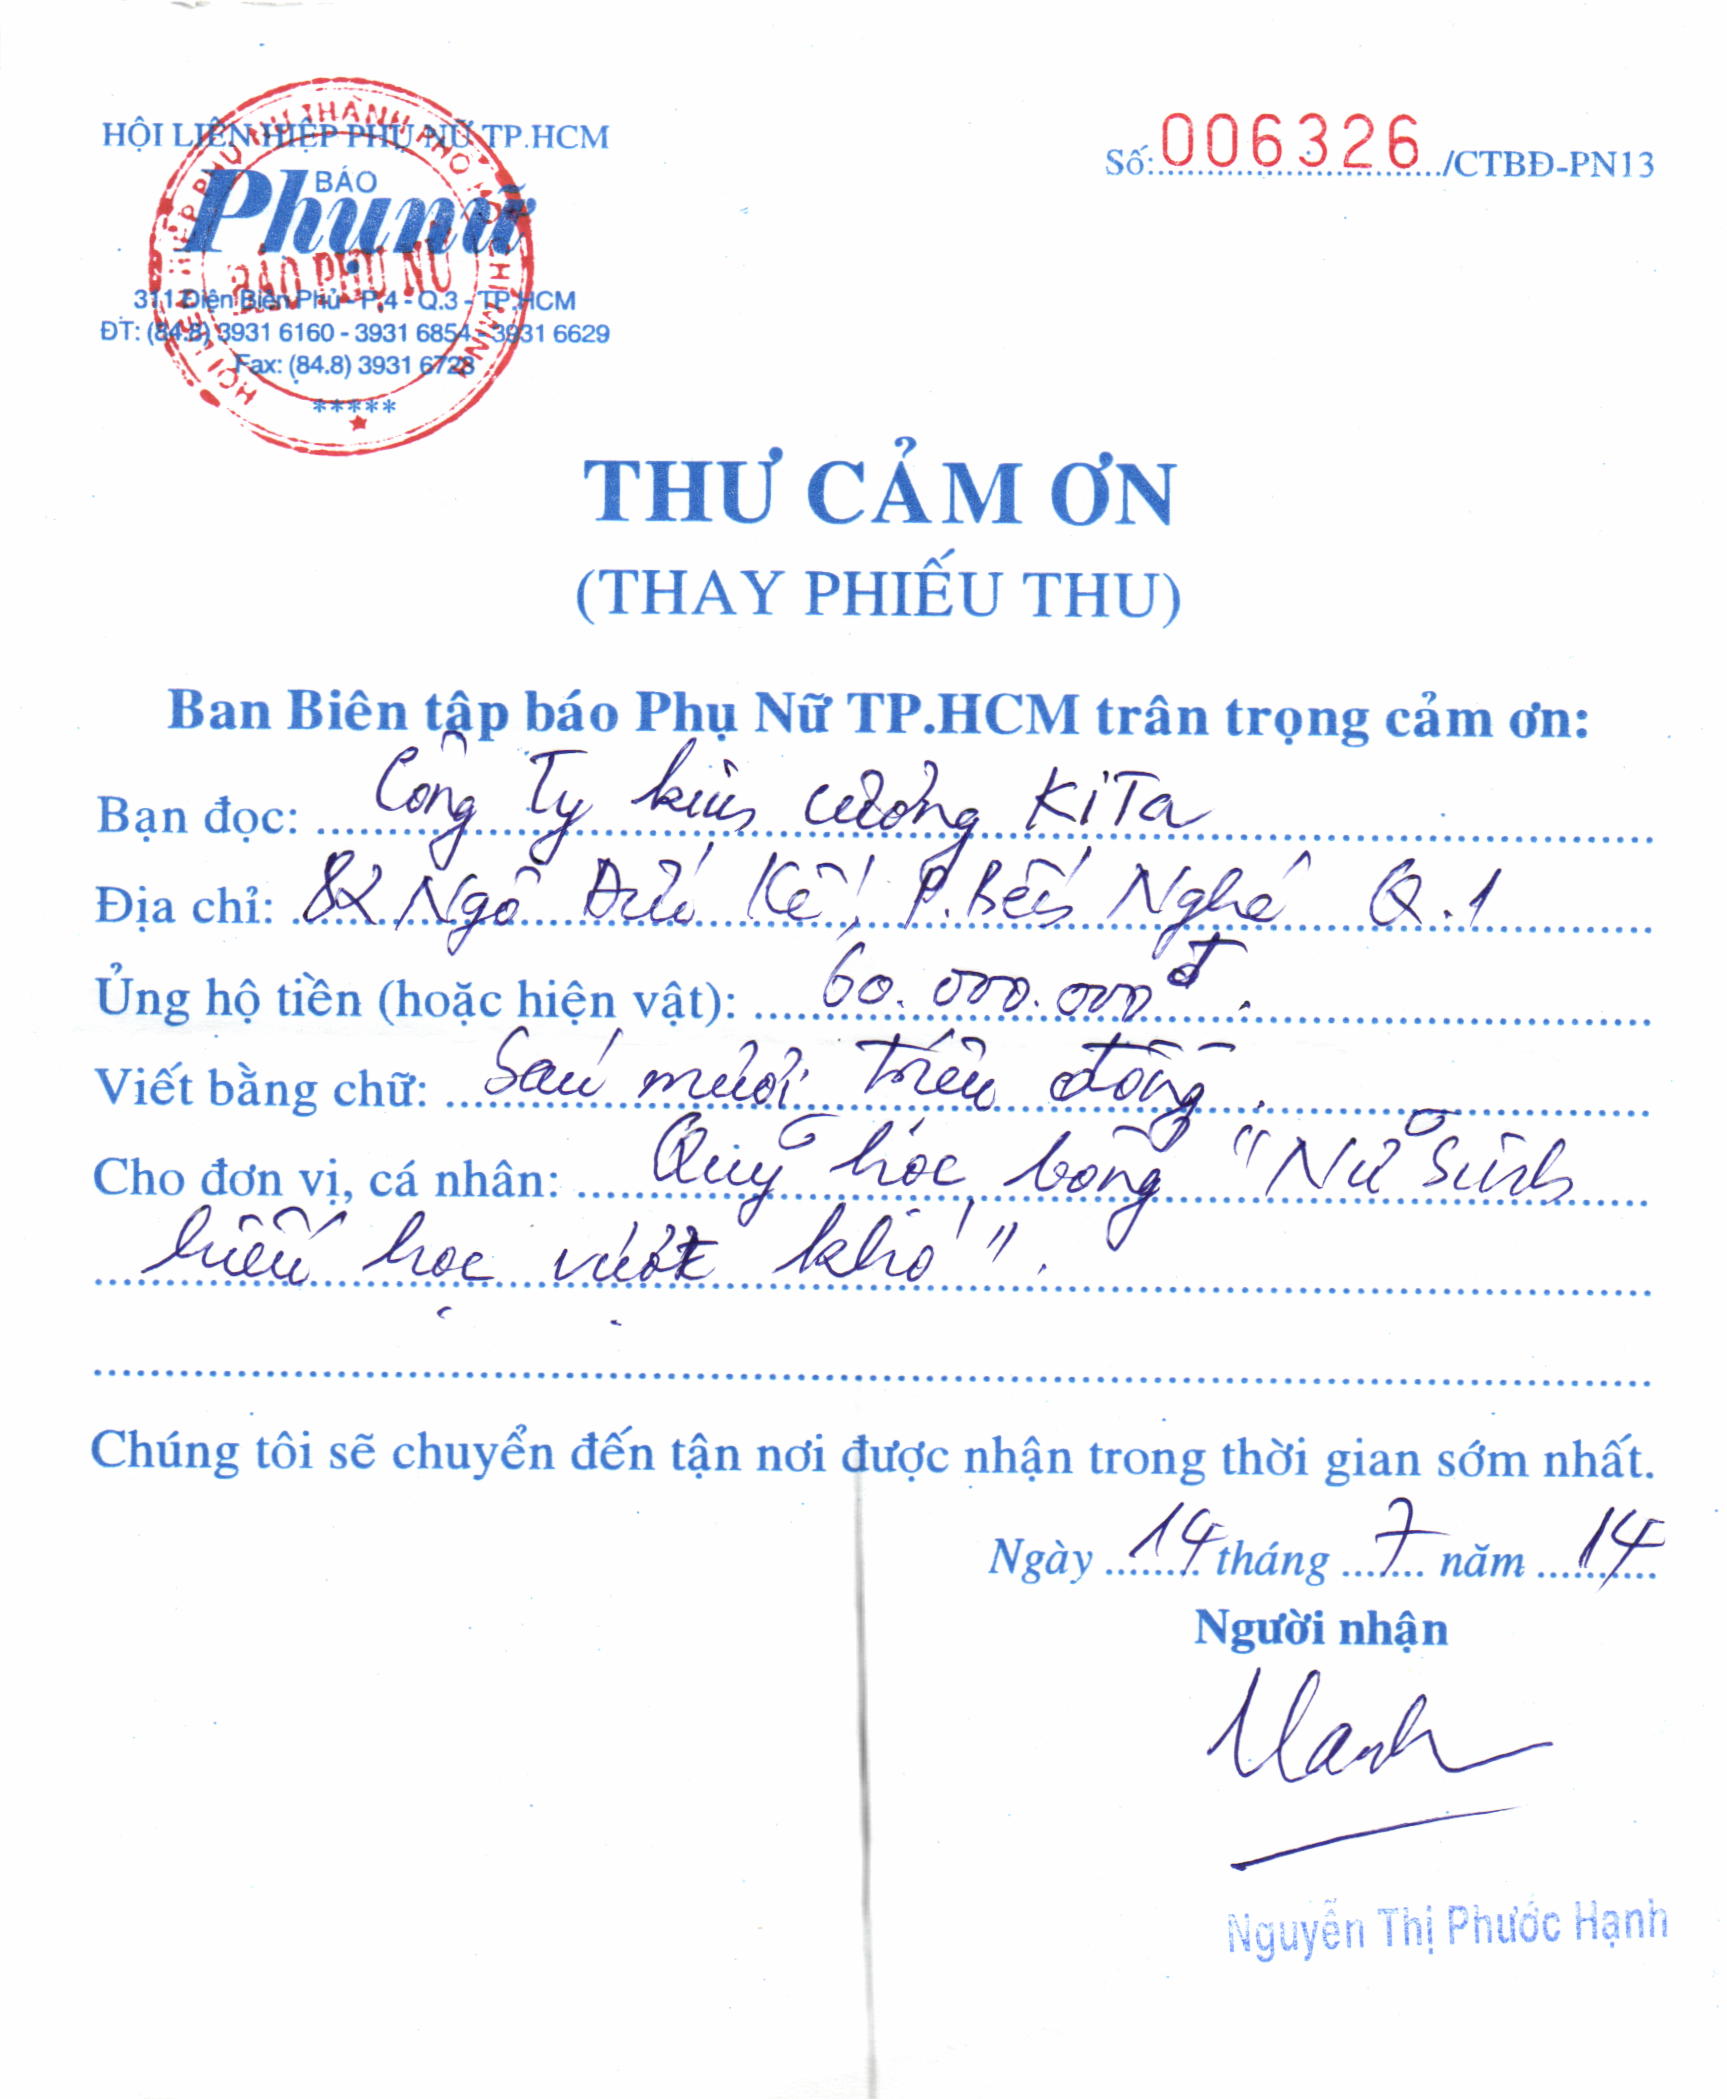 HỘI LIÊN HIỆP PHỤ NỮ TP.HCM
BÁO
Phụ nữ
BÁO PHỤ NỮ
311 Điện Biên Phủ - P.4 - Q.3 - TP.HCM
ĐT: (84.8) 3931 6160 - 3931 6854 - 3931 6629
Fax: (84.8) 3931 6723
*****
Số: 006326 /CTBĐ-PN13
THƯ CẢM ƠN
(THAY PHIẾU THU)
Ban Biên tập báo Phụ Nữ TP.HCM trân trọng cảm ơn:
Bạn đọc: Công Ty kim cương KiTa
Địa chỉ: 82 Ngô Đức Kế, P.Bến Nghé Q.1
Ủng hộ tiền (hoặc hiện vật): 60.000.000đ.
Viết bằng chữ: Sáu mươi triệu đồng.
Cho đơn vị, cá nhân: Quỹ học bổng "Nữ sinh
hiếu học vượt khó".
Chúng tôi sẽ chuyển đến tận nơi được nhận trong thời gian sớm nhất.
Ngày 14 tháng 7 năm 14
Người nhận
Hạnh
Nguyễn Thị Phước Hạnh